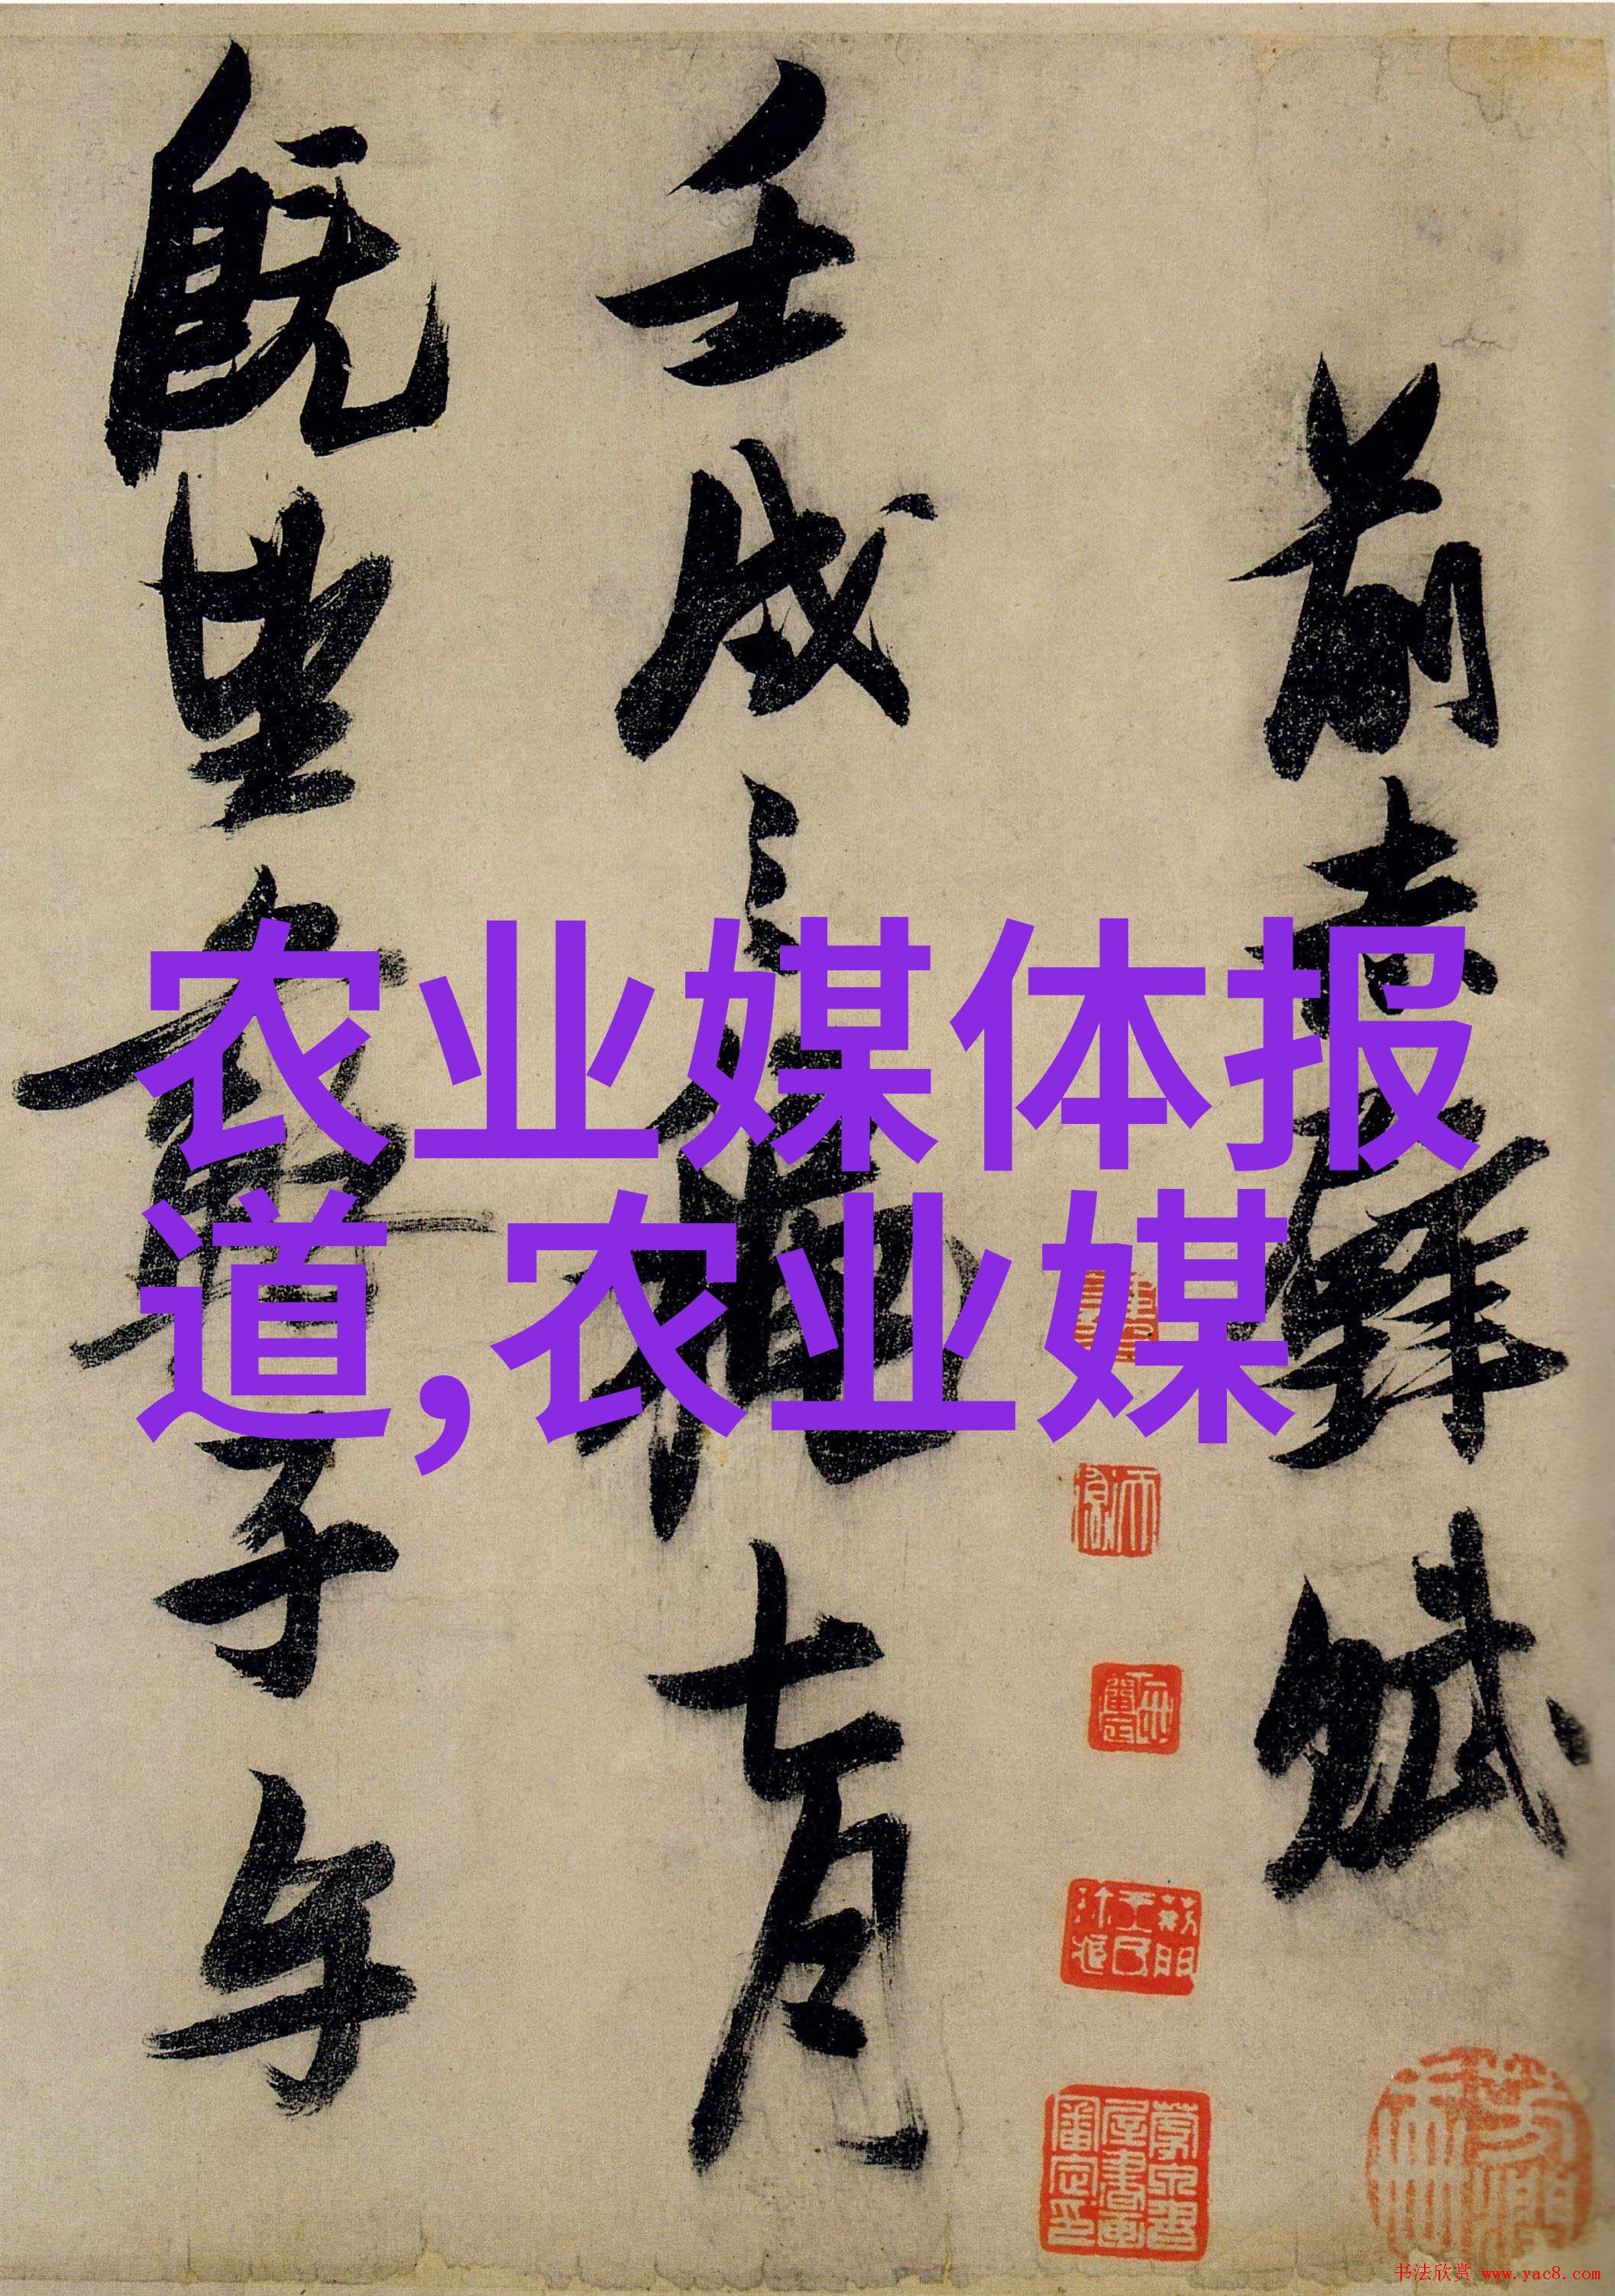 前赤壁賦
壬戌之秋七月
既望蘇子与
农业媒体报
道,农业媒
书法欣赏 www.yac8.com